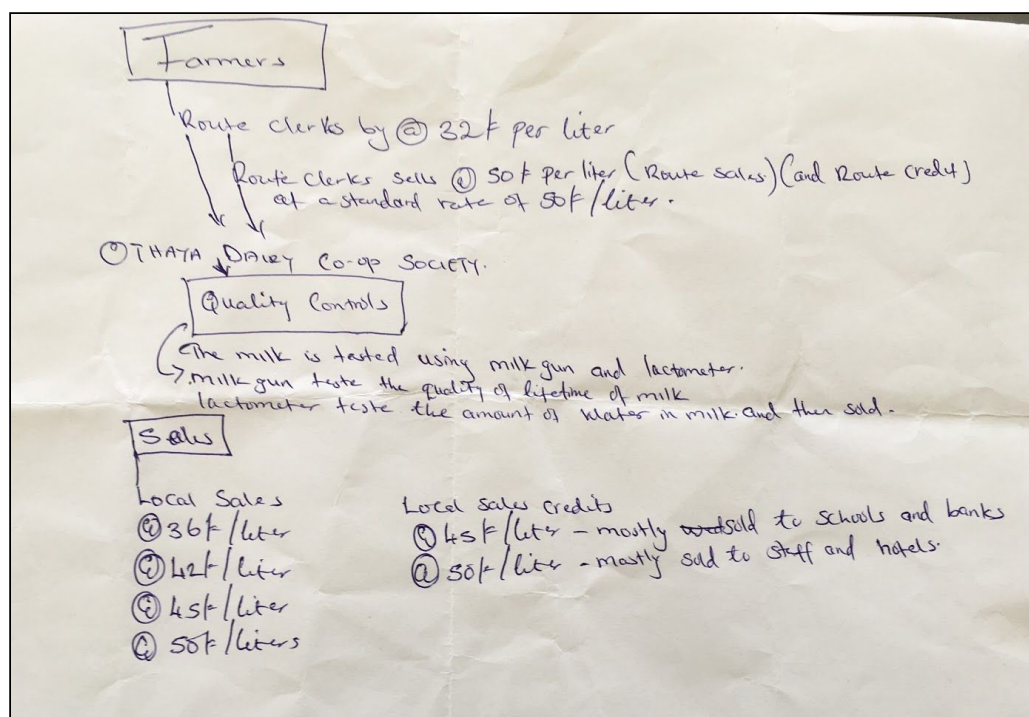 Farmers
Route clerks by @ 32/= per liter
Route clerks sells @ 50/= per liter (Route sales) (and Route credit)
at a standard rate of 50/=/liter.
OTHAYA DAIRY CO-OP SOCIETY.
Quality Controls
The milk is tested using milk gun and lactometer.
milk gun teste the quality of lifetime of milk
lactometer teste the amount of water in milk and then sold.
Sales
Local Sales
@ 36/=/liter
@ 42/=/liter
@ 45/=/liter
@ 50/=/liters
Local sales credits
@ 45/=/liter - mostly sold to schools and banks
@ 50/=/liter - mostly sold to staff and hotels.